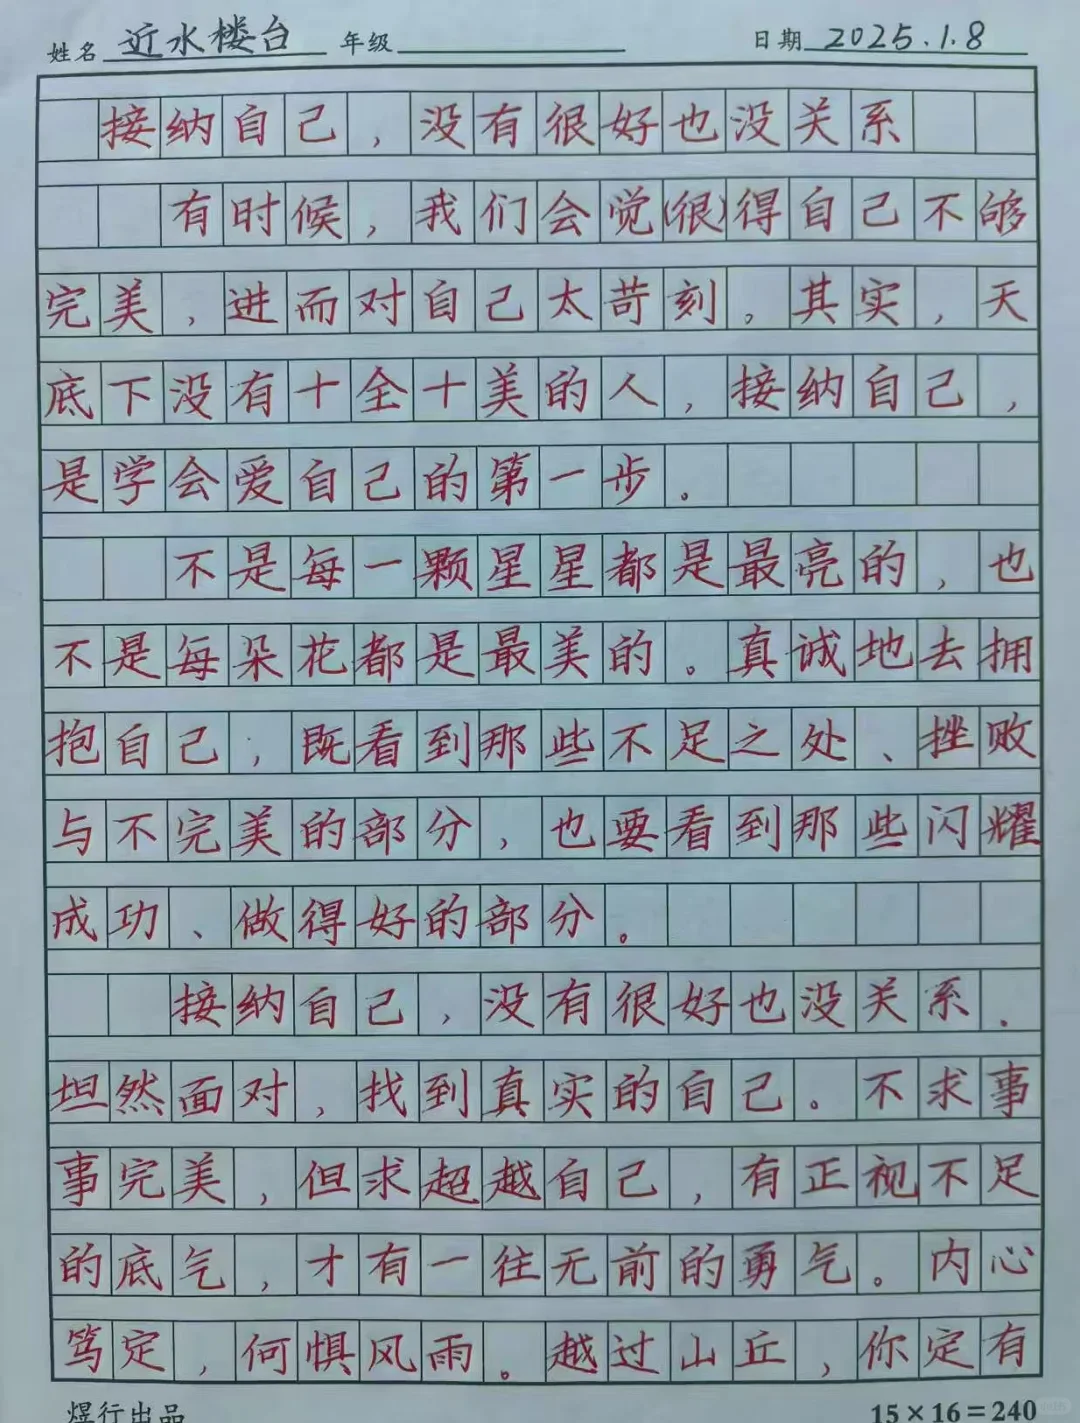 姓名 近水楼台 年级 日期 2025.1.8
接纳自己，没有很好也没关系
有时候，我们会觉(很)得自己不够
完美，进而对自己太苛刻。其实，天
底下没有十全十美的人，接纳自己，
是学会爱自己的第一步。
不是每一颗星星都是最亮的，也
不是每朵花都是最美的。真诚地去拥
抱自己，既看到那些不足之处、挫败
与不完美的部分，也要看到那些闪耀
成功、做得好的部分。
接纳自己，没有很好也没关系.
坦然面对，找到真实的自己。不求事
事完美，但求超越自己，有正视不足
的底气，才有一往无前的勇气。内心
笃定，何惧风雨。越过山丘，你定有
煜行出品 15×16=240